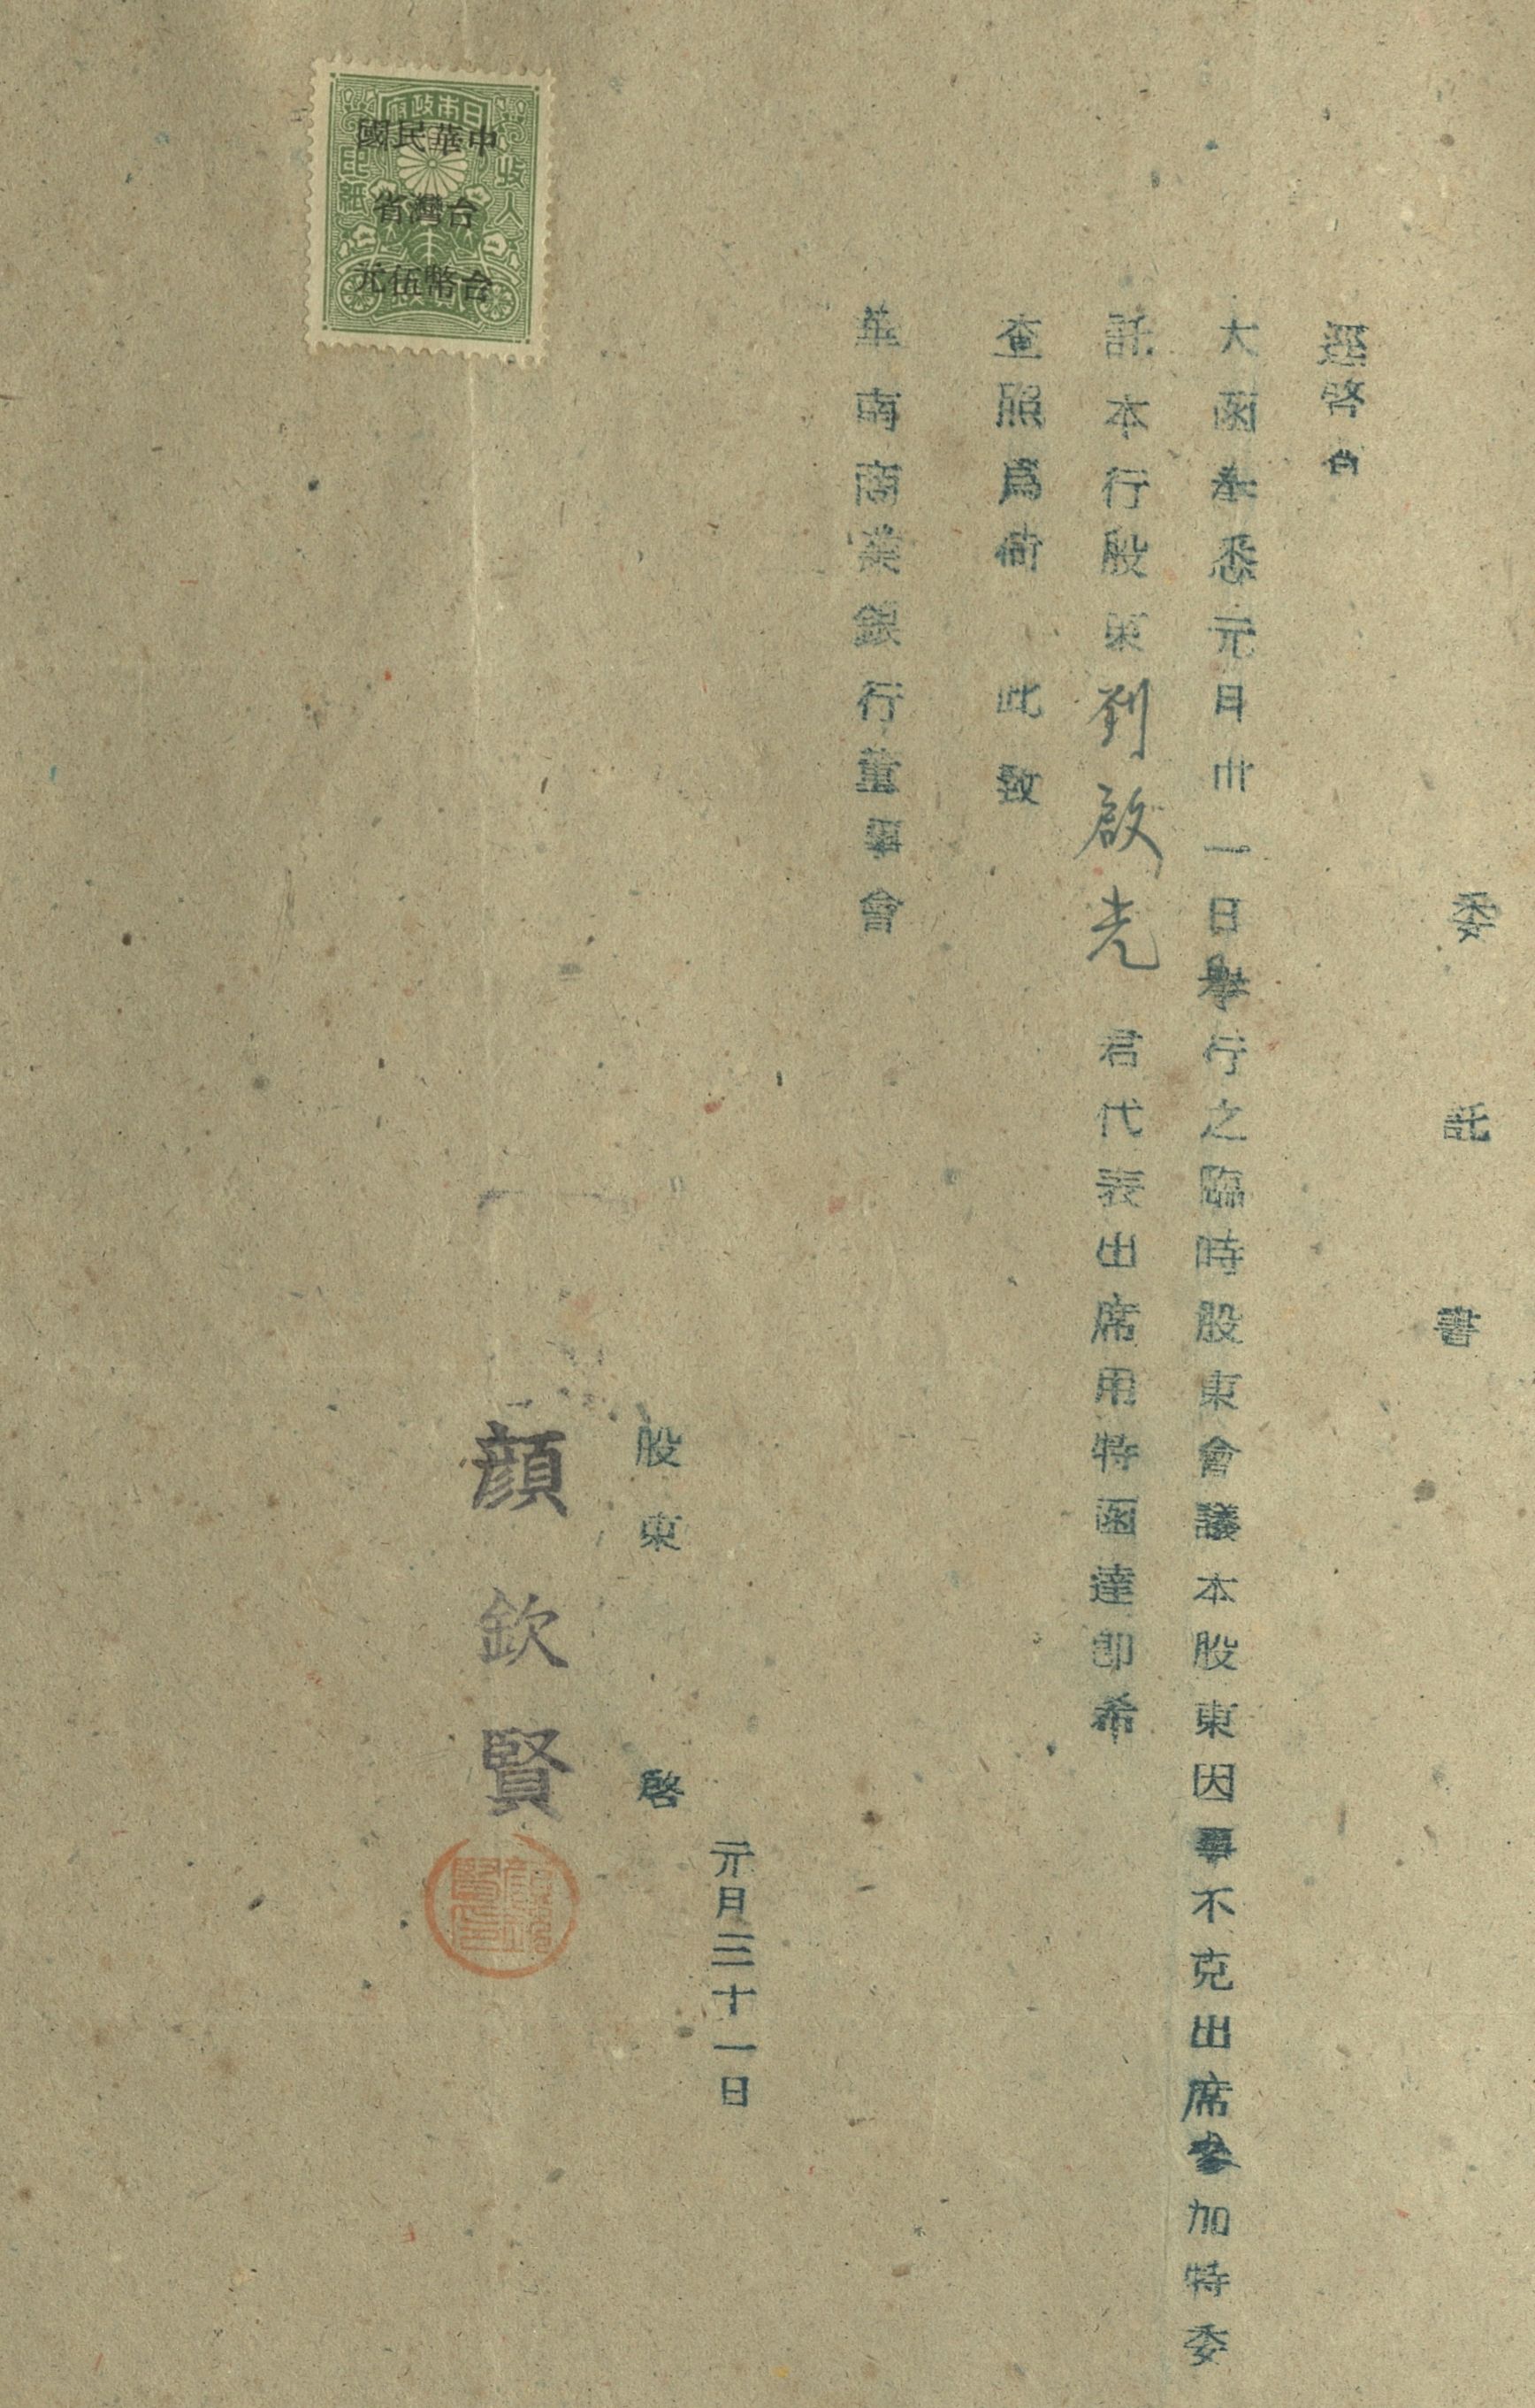 委託書
逕啓者
大函奉悉元月卅一日舉行之臨時股東會議本股東因事不克出席參加特委
託本行股東劉啟光君代表出席用特函達即希
查照爲荷 此致
華南商業銀行董事會
元月三十一日
股東 啓
顏欽賢
日本政府
收入
印紙
中華民國
台灣省
台幣伍元